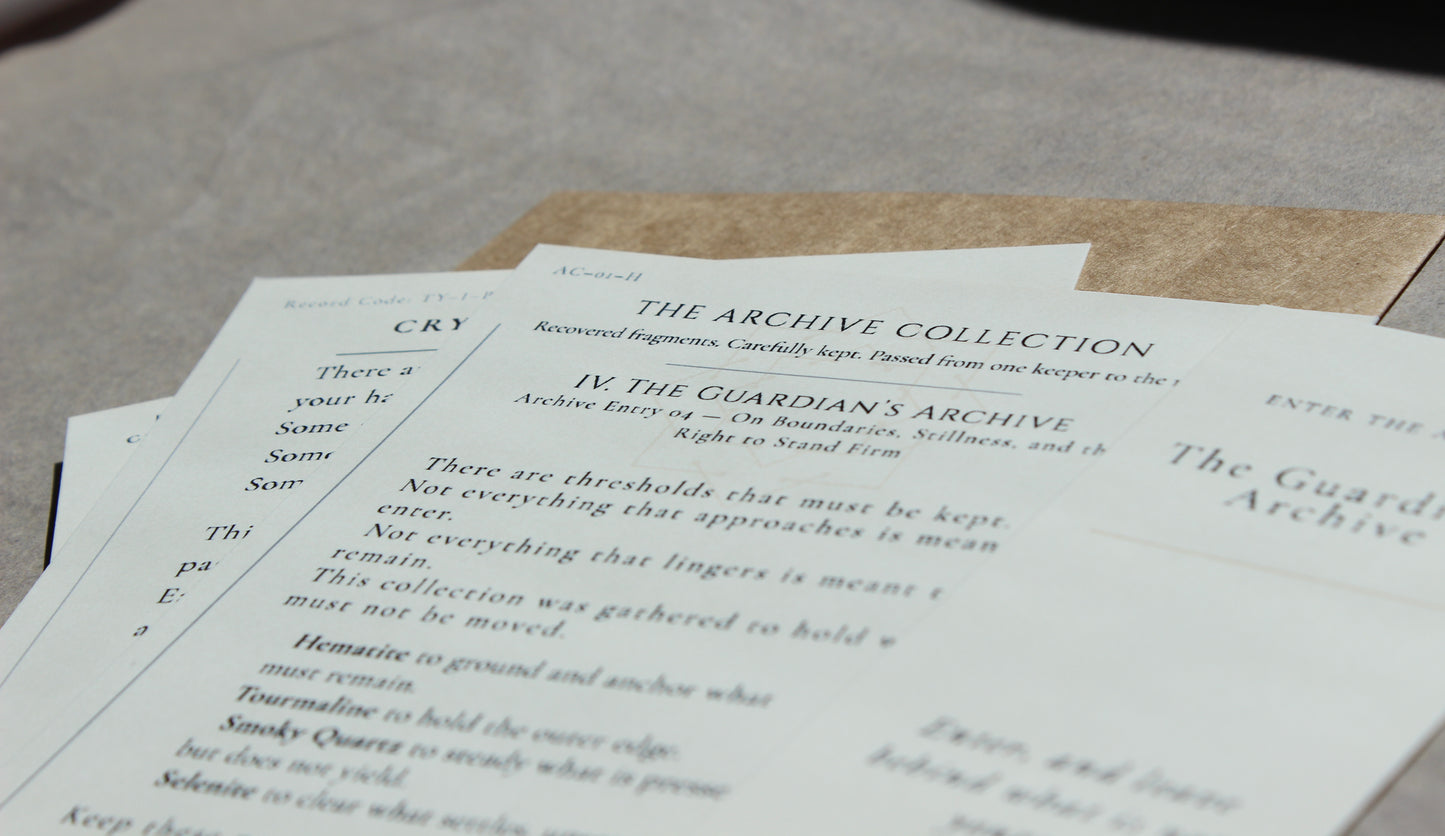 AC-01-H
THE ARCHIVE COLLECTION
Recovered fragments. Carefully kept. Passed from one keeper to the
IV. THE GUARDIAN'S ARCHIVE
Archive Entry 04 — On Boundaries, Stillness, and th
Right to Stand Firm
There are thresholds that must be kept.
Not everything that approaches is mean
enter.
Not everything that lingers is meant
remain.
This collection was gathered to hold
must not be moved.
Hematite to ground and anchor what
must remain.
Tourmaline to hold the outer edge.
Smoky Quartz to steady what is presse
but does not yield.
Selenite to clear what settles,
Keep these
Record Code: TY-I-P
CRY
There a
your ha
Some
Some
Som
Thi
pa
E
a
ENTER THE A
The Guardi
Archive
Enter, and leave
behind what is